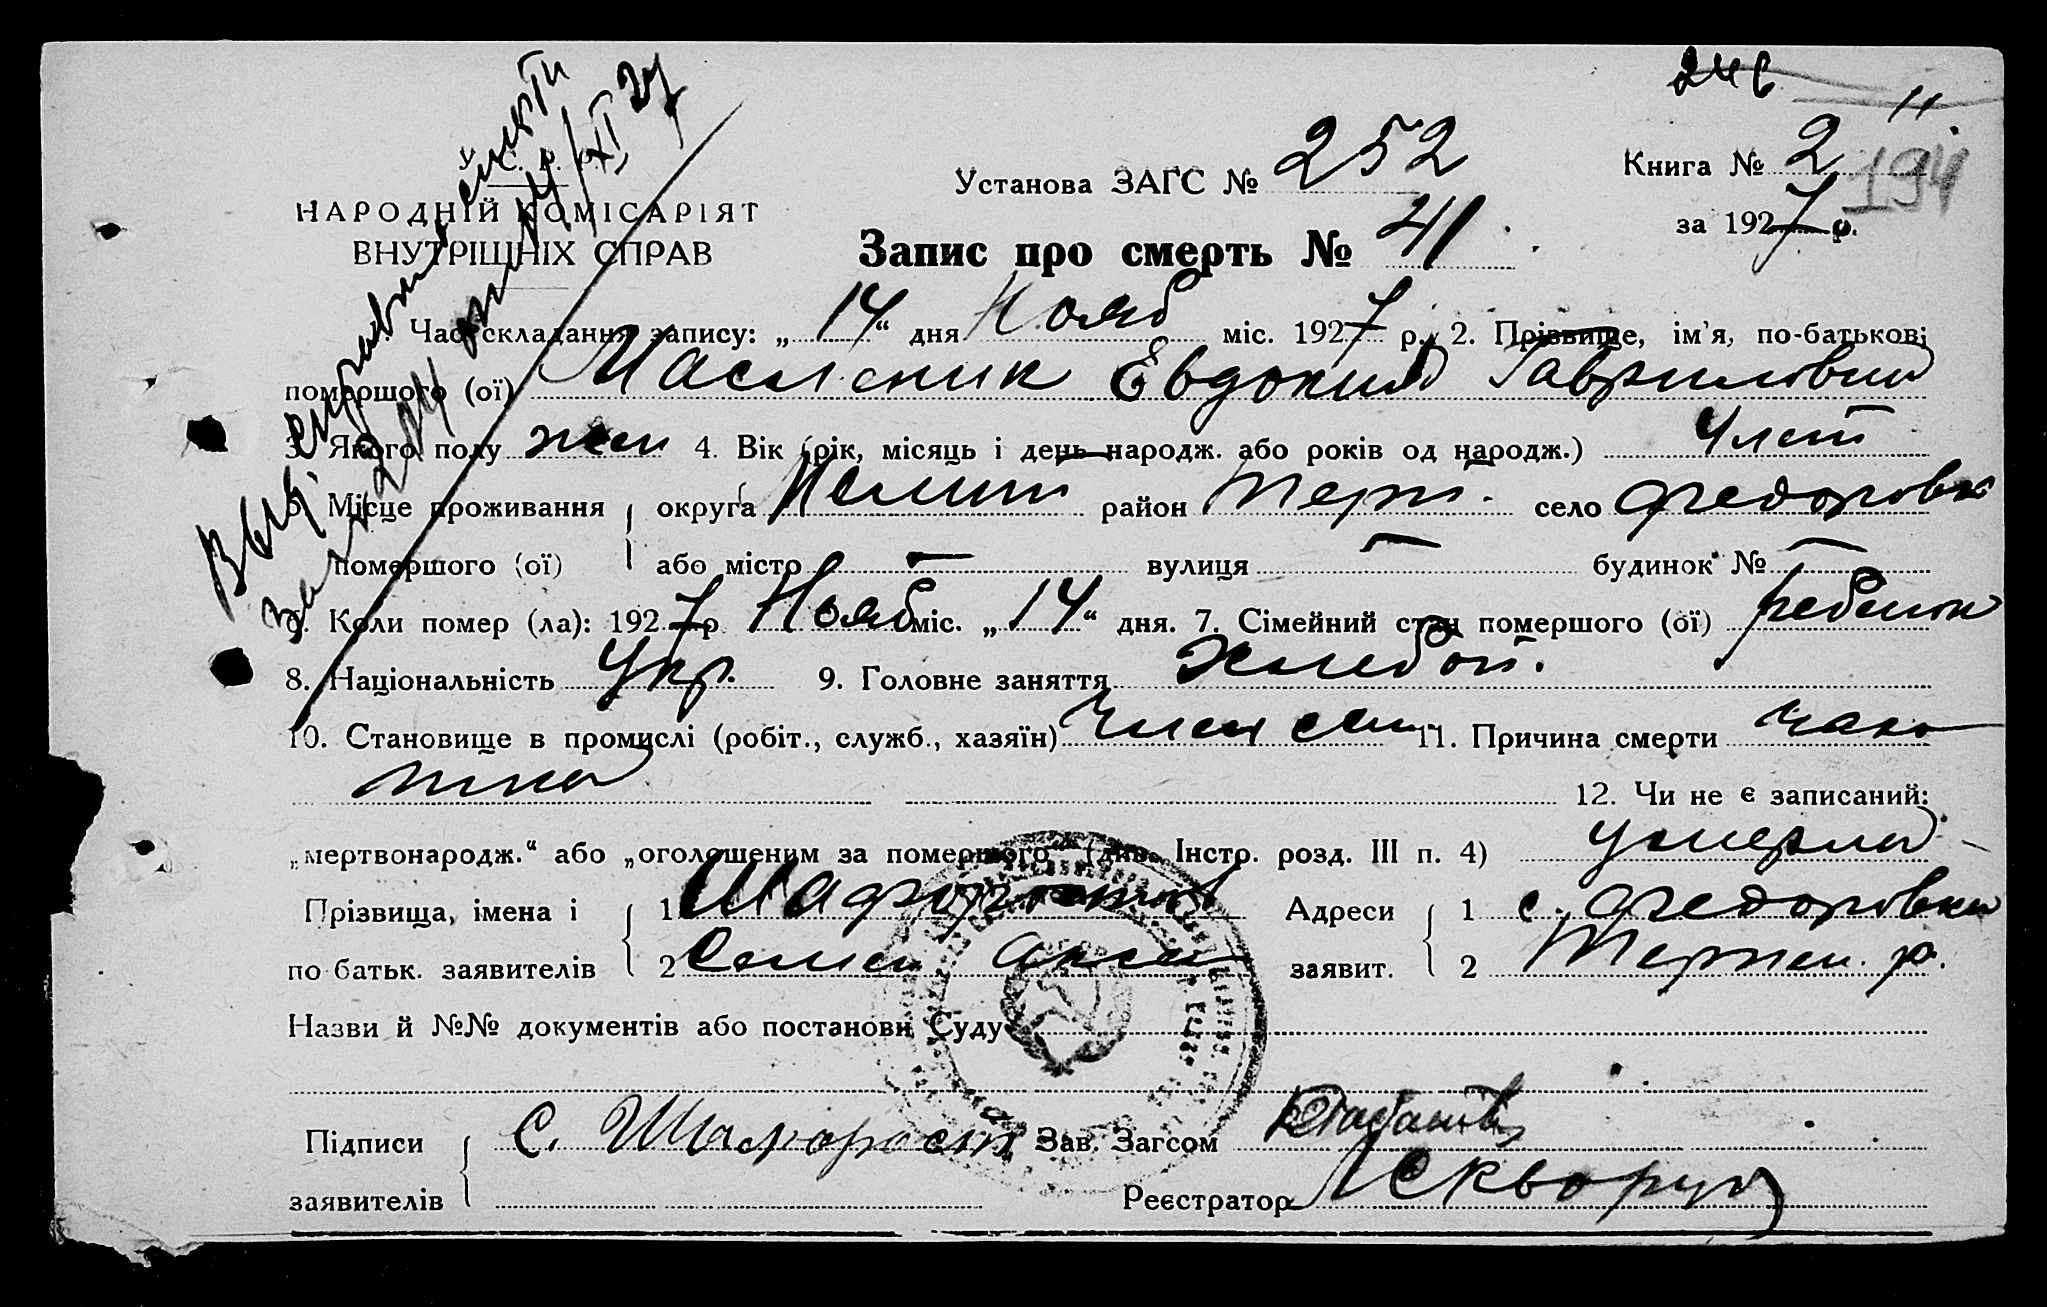 246
11.
194
У. С. Р. Р.
НАРОДНІЙ КОМІСАРІЯТ
ВНУТРІШНІХ СПРАВ
Установа ЗАГС № 252
Книга № 2
за 1927 р.
Запис про смерть № 41
Час складання запису: „14“ дня Нояб міс. 1927 р. 2. Прізвище, ім'я, по-батькові
помершого (ої) Масленик Евдокия Гавриловна
3. Якого полу жен 4. Вік (рік, місяць і день народж. або років од народж.) 4 лет
5. Місце проживання округа район Терп. село Федоровка
помершого (ої) або місто — вулиця — будинок № —
6. Коли помер (ла): 1927 р. Нояб міс. „14“ дня. 7. Сімейний стан помершого (ої) ребенок
8. Національність Укр. 9. Головне заняття Хлебоп.
10. Становище в промислі (робіт., служб., хазяїн) Член сем 11. Причина смерти
12. Чи не є записаний:
„мертвонародж.“ або „оголошеним за помершого“ (див. Інстр. розд. III п. 4) умерла
Прізвища, імена і 1 Шафорост Адреси 1 с. Федоровка
по батьк. заявителів 2 заявит. 2 р.
Назви й №№ документів або постанови Суду
Підписи С. Шафорост Зав. Загсом
заявителів Реєстратор